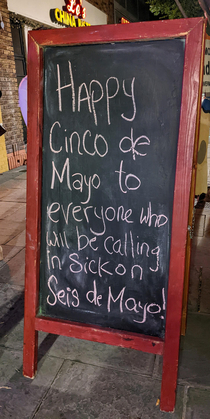 CHINA
Happy
Cinco de
Mayo to
everyone who
will be calling
in Sick on
Seis de Mayo!